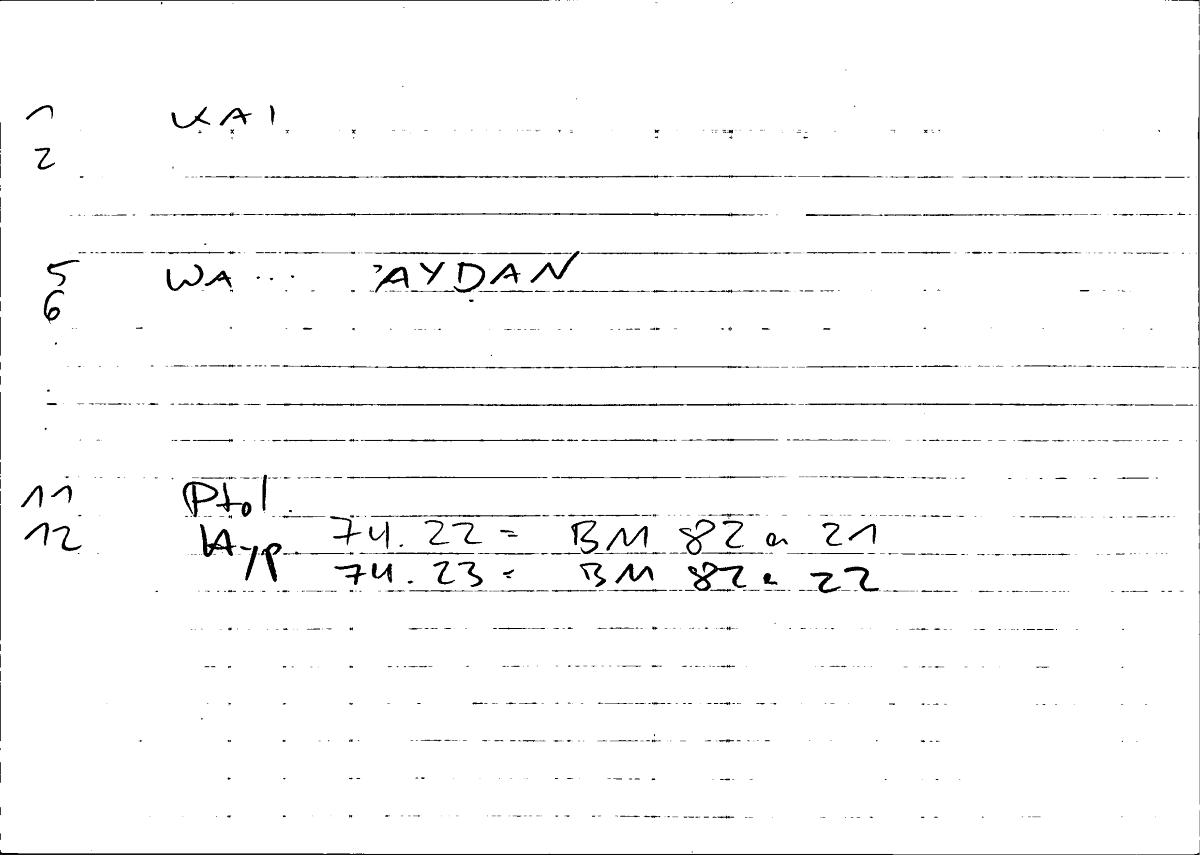 1 KAI
2
5 WA... ʾAYDAN
6
11 Ptol.
12 Hyp. 74.22 = BM 82 a 21
74.23 = BM 82 a 22